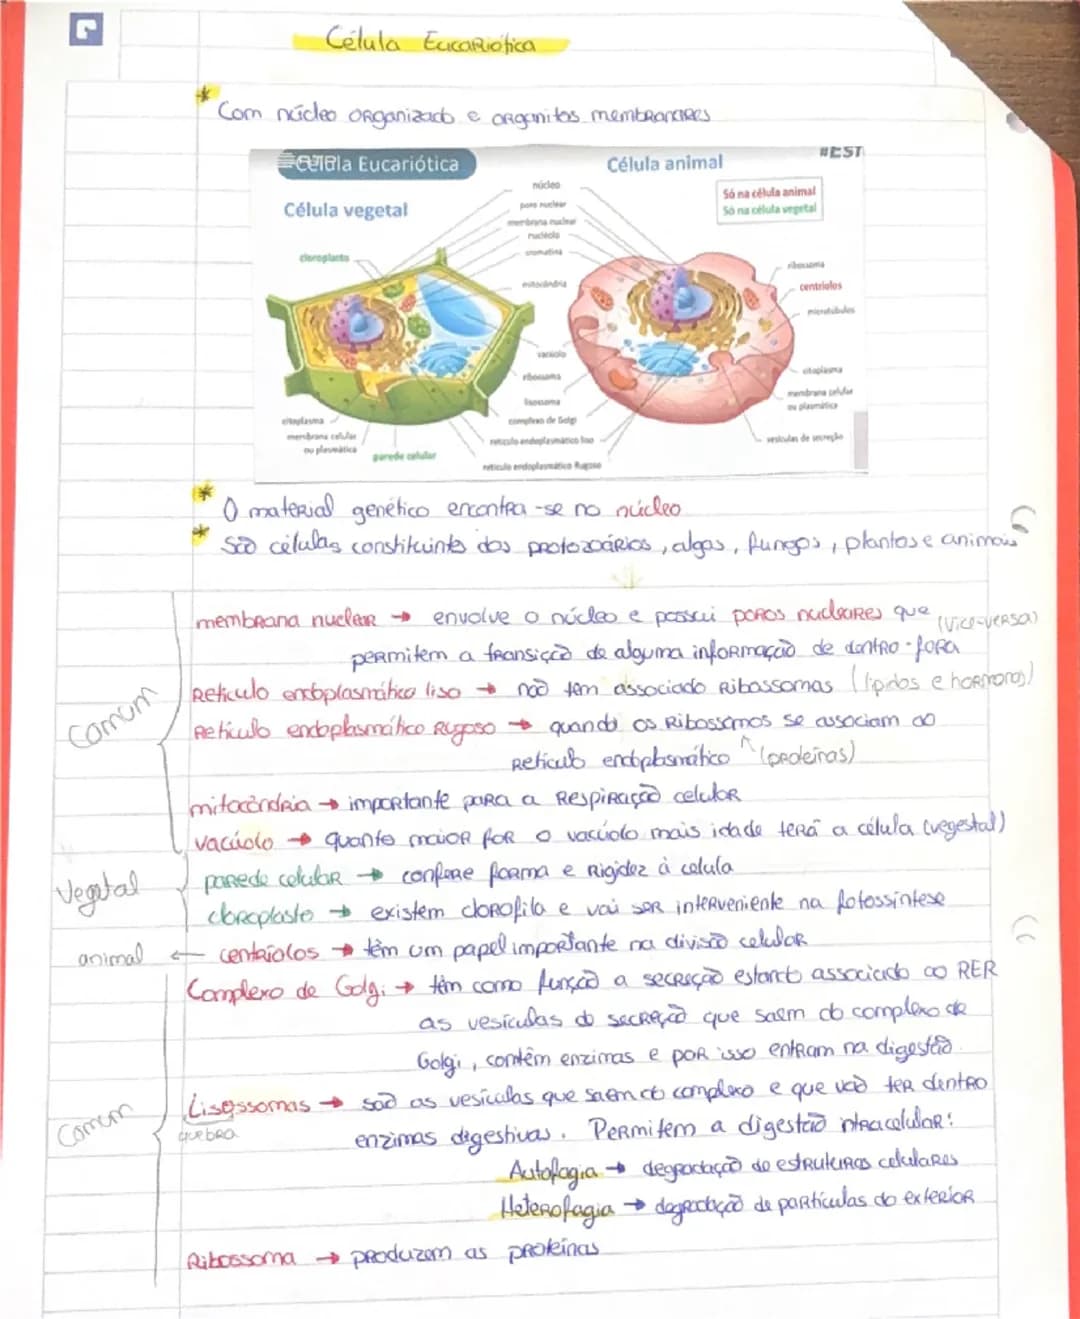 Célula Eucariótica
* Com núcleo organizado e organitos membranares
Célula Eucariótica
Célula animal
#EST
Célula vegetal
Só na célula animal
Só na célula vegetal
núcleo
poro nuclear
membrana nuclear
nucléolo
cromatina
mitocôndria
cloroplasto
ribossoma
centríolos
microtúbulos
vacúolo
ribossoma
lisossoma
complexo de Golgi
retículo endoplasmático liso
retículo endoplasmático Rugoso
citoplasma
membrana celular
ou plasmática
parede celular
citoplasma
membrana celular
ou plasmática
vesículas de secreção
* O material genético encontra-se no núcleo
* São células constituintes dos protozoários, algas, fungos, plantas e animais
membrana nuclear → envolve o núcleo e possui poros nucleares que (vice-versa)
permitem a transição de alguma informação de dentro-fora
Comum
Reticulo endoplasmático liso → não tem associado Ribossomas (lípidos e hormonas)
Retículo endoplasmático Rugoso → quando os Ribossomos se associam ao
Retículo endoplasmático (proteínas)
mitocôndria → importante para a Respiração celular
vacúolo → quanto maior for o vacúolo mais idade terá a célula (vegestal)
Vegetal
parede celular → confere forma e Rigidez à celula
cloroplasto → existem clorofila e vai ser interveniente na fotossíntese
animal ← centríolos → têm um papel importante na divisão celular
Complexo de Golgi → têm como função a secreção estando associado ao RER
as vesículas do secreção que saem do complexo de
Golgi, contêm enzimas e por isso entram na digestão
Comum
Lisossomas → são as vesículas que saem do complexo e que vão ter dentro
quebra
enzimas digestivas. Permitem a digestão intracelular:
Autofagia → degradação de estruturas celulares
Heterofagia → degradação de partículas do exterior
Ribossoma → produzem as proteínas